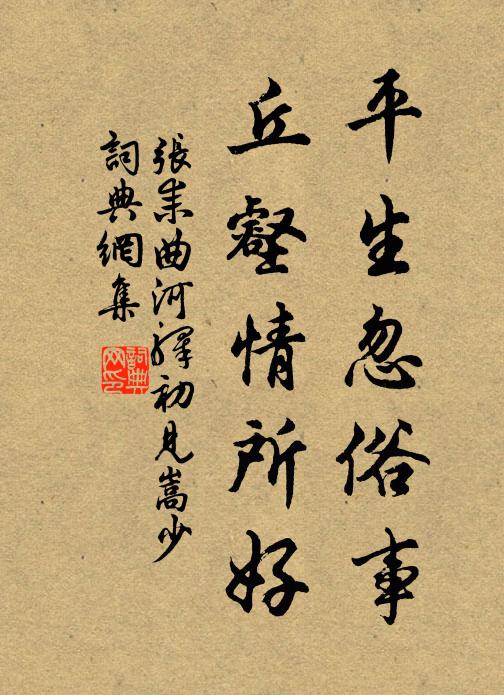 平生忽俗事
丘壑情所好
張耒曲河驛初見嵩少
詞典網集
詞典
网印